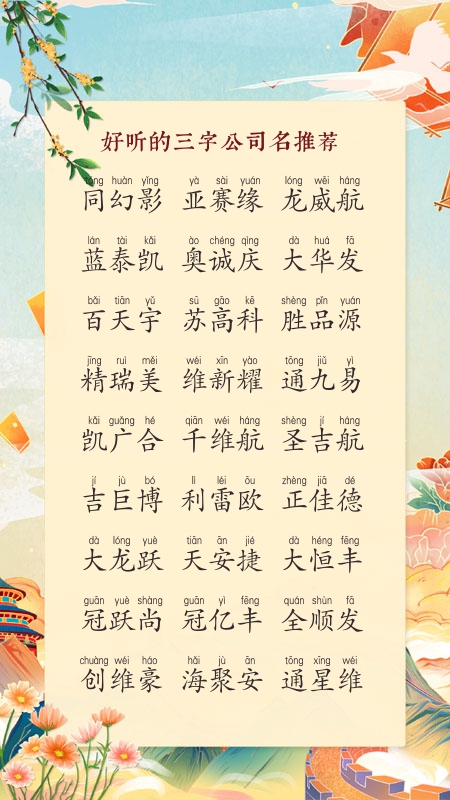 好听的三字公司名推荐
tóng huàn yǐng yà sài yuán lóng wēi háng
同幻影 亚赛缘 龙威航
lán tài kǎi ào chéng qìng dà huá fā
蓝泰凯 奥诚庆 大华发
bǎi tiān yǔ sū gāo kē shèng pǐn yuán
百天宇 苏高科 胜品源
jīng ruì měi wéi xīn yào tōng jiǔ yì
精瑞美 维新耀 通九易
kǎi guǎng hé qiān wéi háng shèng jí háng
凯广合 千维航 圣吉航
jí jù bó lì léi ōu zhèng jiā dé
吉巨博 利雷欧 正佳德
dà lóng yuè tiān ān jié dà héng fēng
大龙跃 天安捷 大恒丰
guān yuè shàng guān yì fēng quán shùn fā
冠跃尚 冠亿丰 全顺发
chuàng wéi háo hǎi jù ān tōng xīng wéi
创维豪 海聚安 通星维